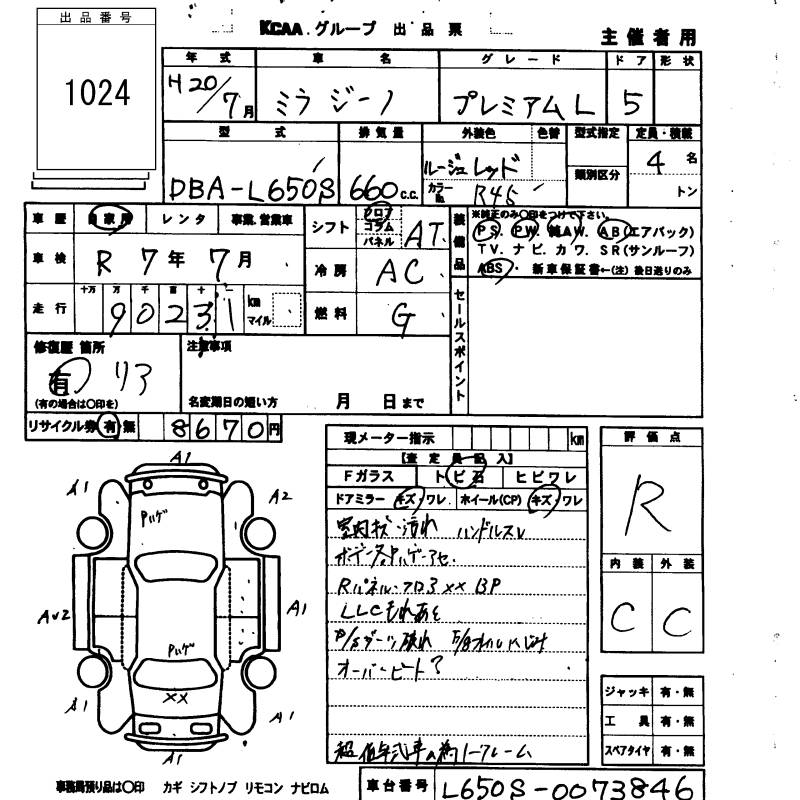 出品番号
1024
KCAA.グループ 出品票
主催者用
年式 車名 グレード ドア 形状
H20/7月 ミラジーノ プレミアムL 5
型式 排気量 外装色 色替 型式指定 定員・積載
類別区分
DBA-L650S 660c.c. ルージュレッド カラーNo. R45 4名
トン
車歴 自家用 レンタ 事業.営業車
シフト フロア コラム パネル AT
装備品 ※純正のみ〇印をつけて下さい。
PS. PW. 純AW. AB(エアバック)
TV. ナビ. カワ. SR(サンルーフ)
ABS. 新車保証書←(注)後日送りのみ
車検 R7年7月
冷房 AC
走行 十万 万 千 百 十 90231 km マイル
燃料 G
セールスポイント
修復歴 箇所
有 リア
(有の場合は〇印を)
注意事項
名変期日の短い方 月 日まで
リサイクル券 有・無 8670円
現メーター指示 km
【査定員記入】
Fガラス トビ石 ヒビワレ
ドアミラー キズ・ワレ ホイール(CP) キズ・ワレ
室内キズ・汚れ ハンドルスレ
Rパネル・フロア××BP
LLCもれあと
オーバーヒート?
超低年式車の為ノークレーム
評価点
R
内装 外装
C C
ジャッキ 有・無
工具 有・無
スペアタイヤ 有・無
A1
A1 A2
Pハゲ
Av2 A1
Pハゲ
××
A1 A1
A1
事務局預り品は〇印 カギ シフトノブ リモコン ナビロム
車台番号 L650S-0073846